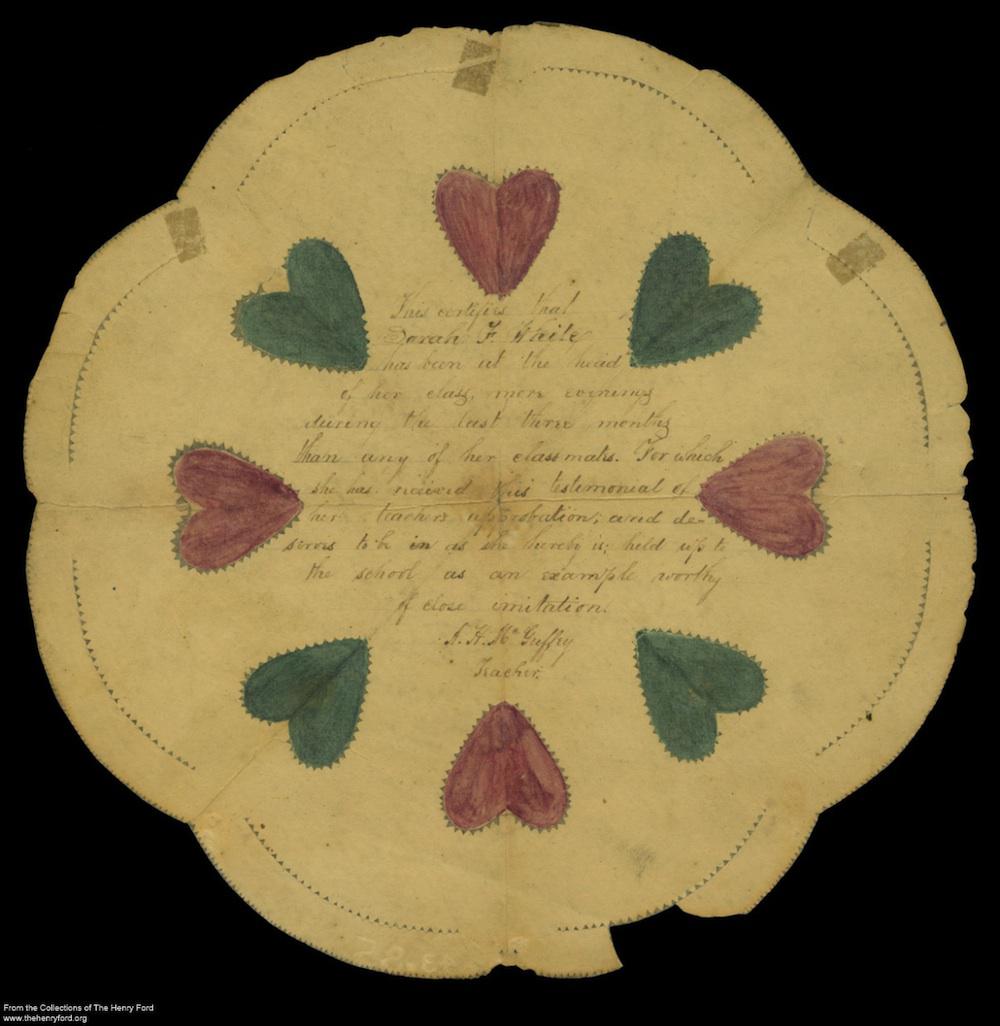 This certifies that
Sarah F. White
has been at the head
of her class, more evenings
during the last three months
than any of her classmats. For which
she has received this testimonial of
her teachers approbation; and de-
serves to be in as she hereby is; held up to
the school as an example worthy
of close imitation.
A. H. Mc Guffey
Teacher.
From the Collections of The Henry Ford
www.thehenryford.org